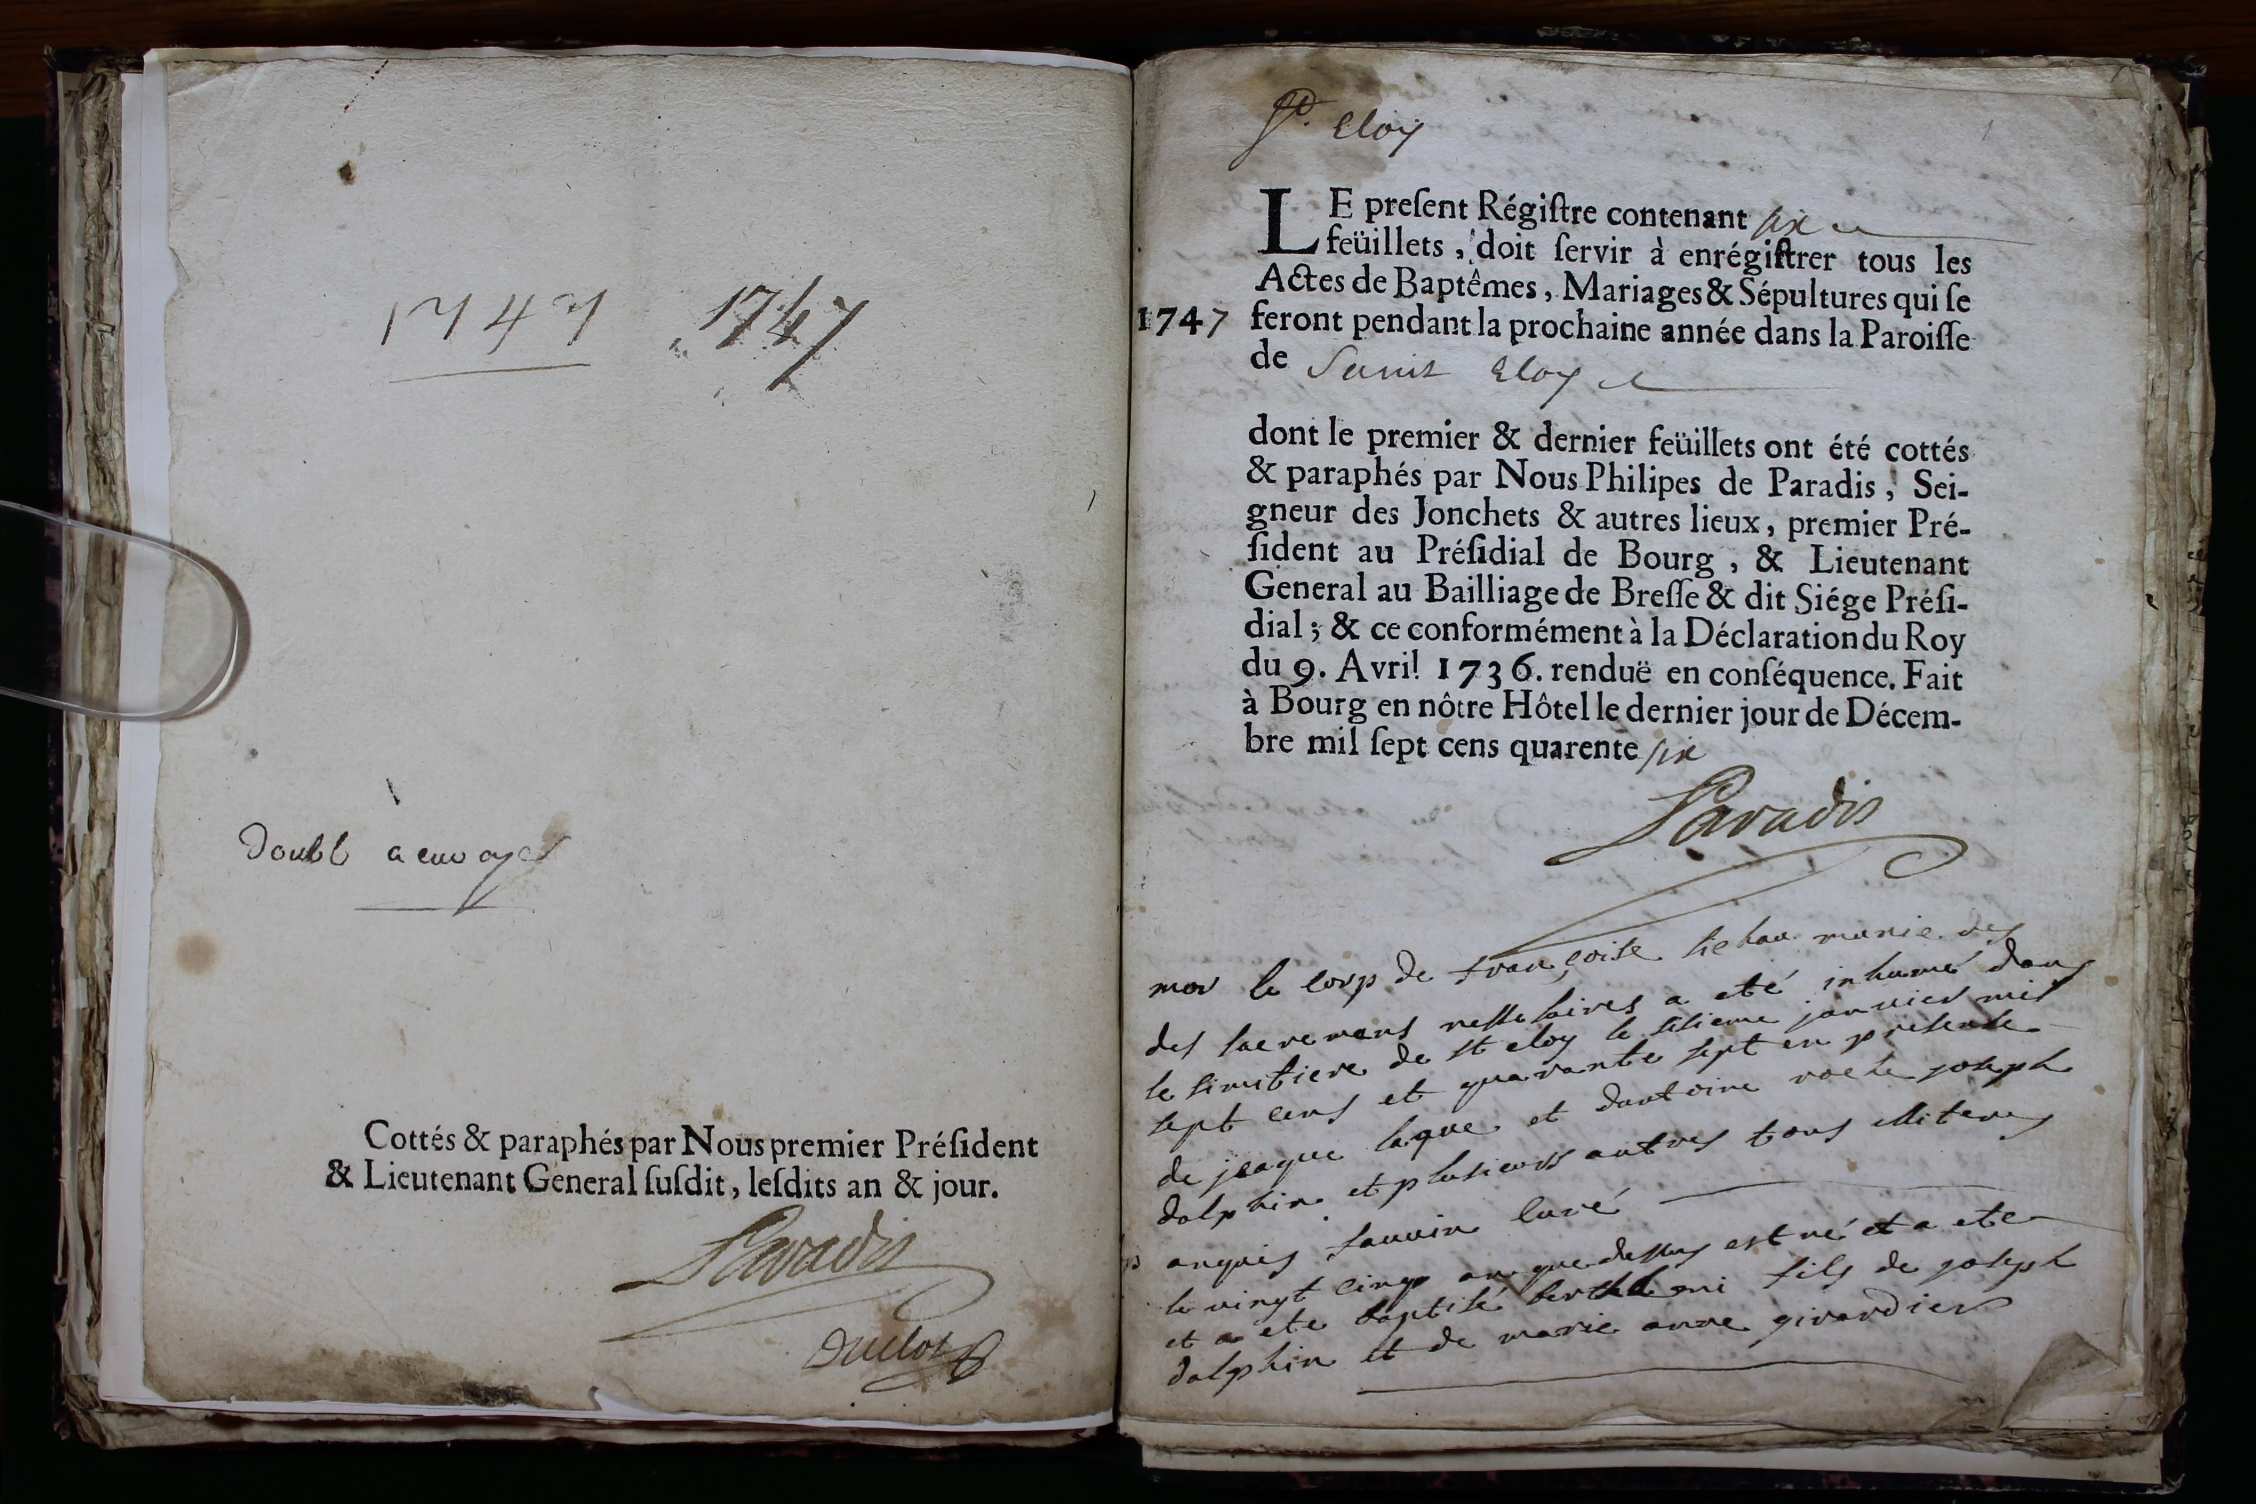 1747 1747
doubl a envoyer
Cottés & paraphés par Nous premier Préſident
& Lieutenant General ſuſdit, leſdits an & jour.
Paradis
Duclos
St. Eloy
LE preſent Régiſtre contenant six
feüillets, doit ſervir à enrégiſtrer tous les
Actes de Baptêmes, Mariages & Sépultures qui ſe
1747 feront pendant la prochaine année dans la Paroiſſe
de Saint Eloy
dont le premier & dernier feüillets ont été cottés
& paraphés par Nous Philipes de Paradis, Sei-
gneur des Jonchets & autres lieux, premier Pré-
ſident au Préſidial de Bourg, & Lieutenant
General au Bailliage de Breſſe & dit Siége Préſi-
dial; & ce conformément à la Déclaration du Roy
du 9. Avril 1736. renduë en conſéquence. Fait
à Bourg en nôtre Hôtel le dernier jour de Décem-
bre mil ſept cens quarente six
Paradis
mor le corp de françoise munie des
des sacremens nessesaires a eté inhumé dans
le simitiere de st eloy le sisieme janvier mil
sept cens et quarante sept en presence
de jeaque laque et dantoine roche joseph
dalphin et plusieurs autres tous illiteres
enquis sauvin curé
le vingt cinq an que dessus est né et a ete
et a ete baptisé berthelmi fils de joseph
dalphin et de marie anne girardier